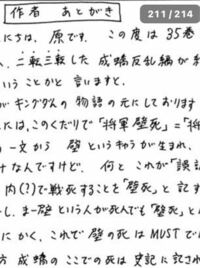 作者 あとがき
211/214
にちは、原です。この度は35巻
、二転三転した成蟜反乱編が
いうことかと言いますと、
がキングダムの物語の元にしております
たは、このくだりで「将軍壁死」=「将
の一文から 壁というキャラが生まれ、
けなんですけど、何とこれが「誤
内(?)で戦死することを「壁死」と記す
し、まー壁という人が死んでも「壁死」と
にかく、これで壁の死はMUSTでは
方 成蟜のここでの死は史記に記され